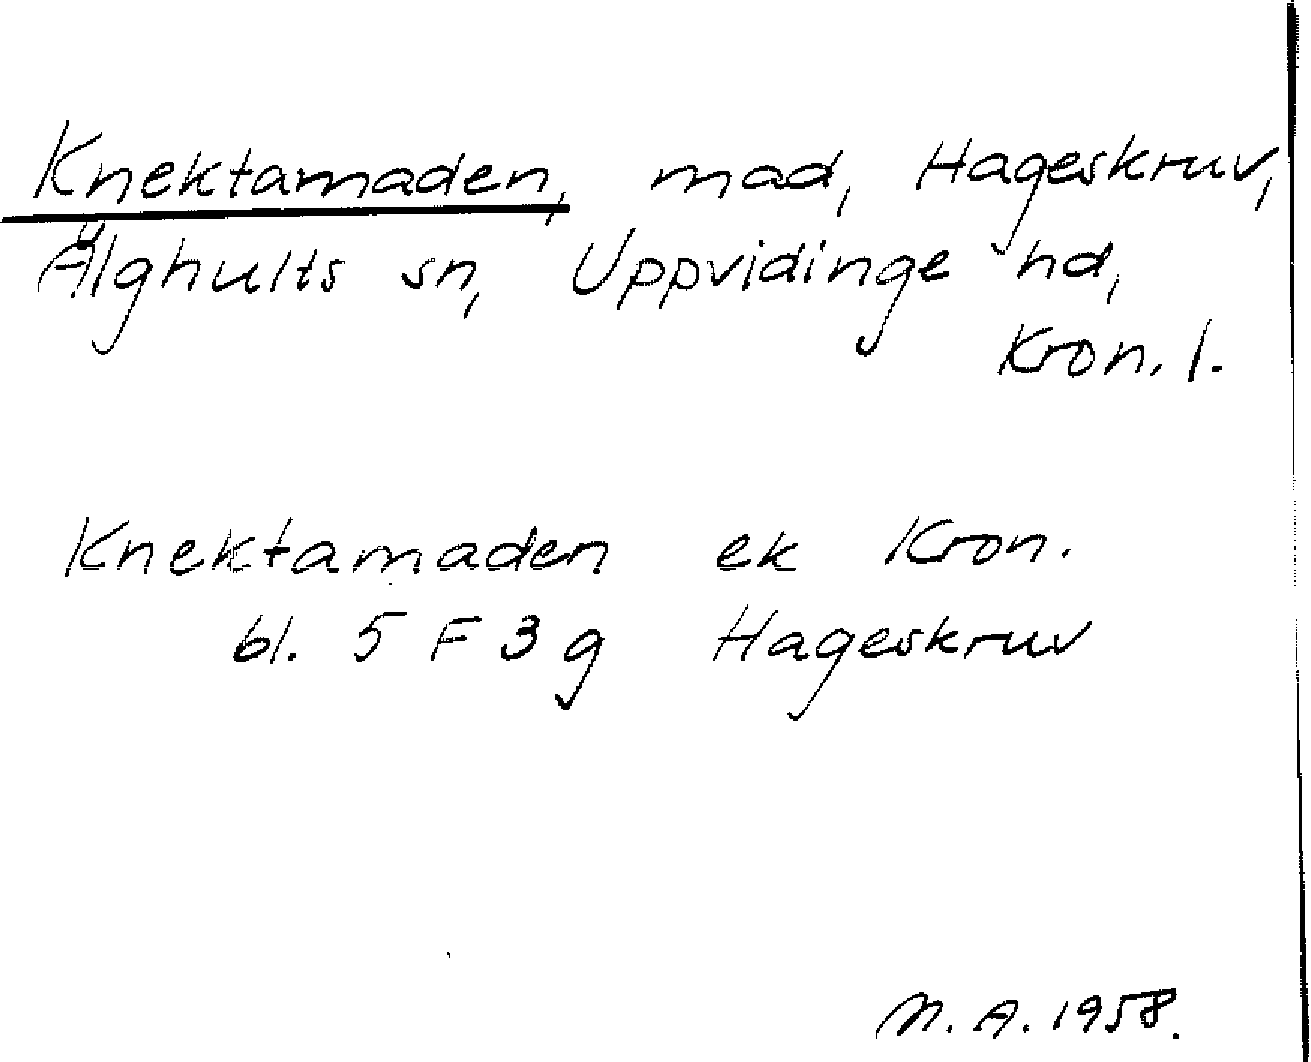 Knektamaden, mad, Hageskruv,
Älghults sn, Uppvidinge hd,
Kron. l.
Knektamaden ek Kron.
bl. 5 F 3 g Hageskruv
N. A. 1958.